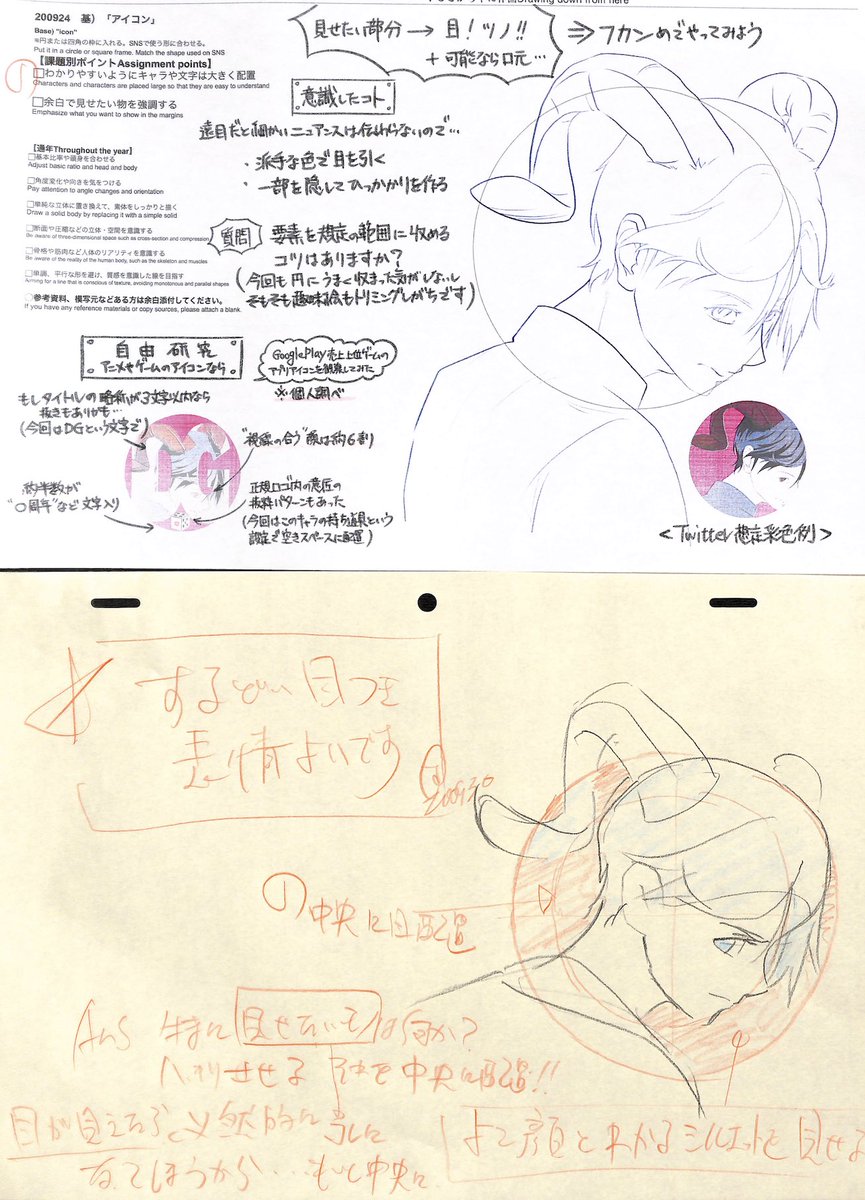 Drawing down from here
200924　基）「アイコン」
Base) "icon"
※円または四角の枠に入れる。SNSで使う形に合わせる。
Put it in a circle or square frame. Match the shape used on SNS
【課題別ポイントAssignment points】
①
□わかりやすいようにキャラや文字は大きく配置
Characters and characters are placed large so that they are easy to understand
□余白で見せたい物を強調する
Emphasize what you want to show in the margins
【通年Throughout the year】
□基本比率や頭身を合わせる
Adjust basic ratio and head and body
□角度変化や向きを気をつける
Pay attention to angle changes and orientation
□単純な立体に置き換えて、素体をしっかりと描く
Draw a solid body by replacing it with a simple solid
□断面や圧縮などの立体・空間を意識する
Be aware of three-dimensional space such as cross-section and compression
□骨格や筋肉など人体のリアリティを意識する
Be aware of the reality of the human body, such as the skeleton and muscles
□単調、平行な形を避け、質感を意識した線を目指す
Aiming for a line that is conscious of texture, avoiding monotonous and parallel shapes
○参考資料、模写元などある方は余白添付してください。
If you have any reference materials or copy sources, please attach a blank.
見せたい部分→目！ツノ!!
+可能なら口元…
⇒フカンめでやってみよう
意識したコト
遠目だと細かいニュアンスは伝わらないので…
・派手な色で目を引く
・一部を隠してひっかかりを作る
質問
要素を想定の範囲に収める
コツはありますか？
(今回も円にうまく収まった気がしないし
そもそも趣味絵もトリミングしがちです)
自由研究
アニメやゲームのアイコンなら
GooglePlay売上上位ゲームの
アプリアイコンを観察してみた
※個人調べ
もしタイトルの略称が3文字以内なら
抜きもありかも…
(今回はDGという文字で)
DG
"視線の合う"顔は約6割
約半数が
"〇周年"など文字入り
正規ロゴ内の意匠の
抜粋パターンもあった
(今回はこのキャラの持ち道具という
設定で空きスペースに配置)
<Twitter想定彩色例>
するどい目つき
表情よいです
200930
① 中央に目配置
Ans 特に見せたいものは何か？
ハッキリさせる それを中央に配置!!
目が見えたら
もっと中央に
よこ顔とわかるシルエットを見せる